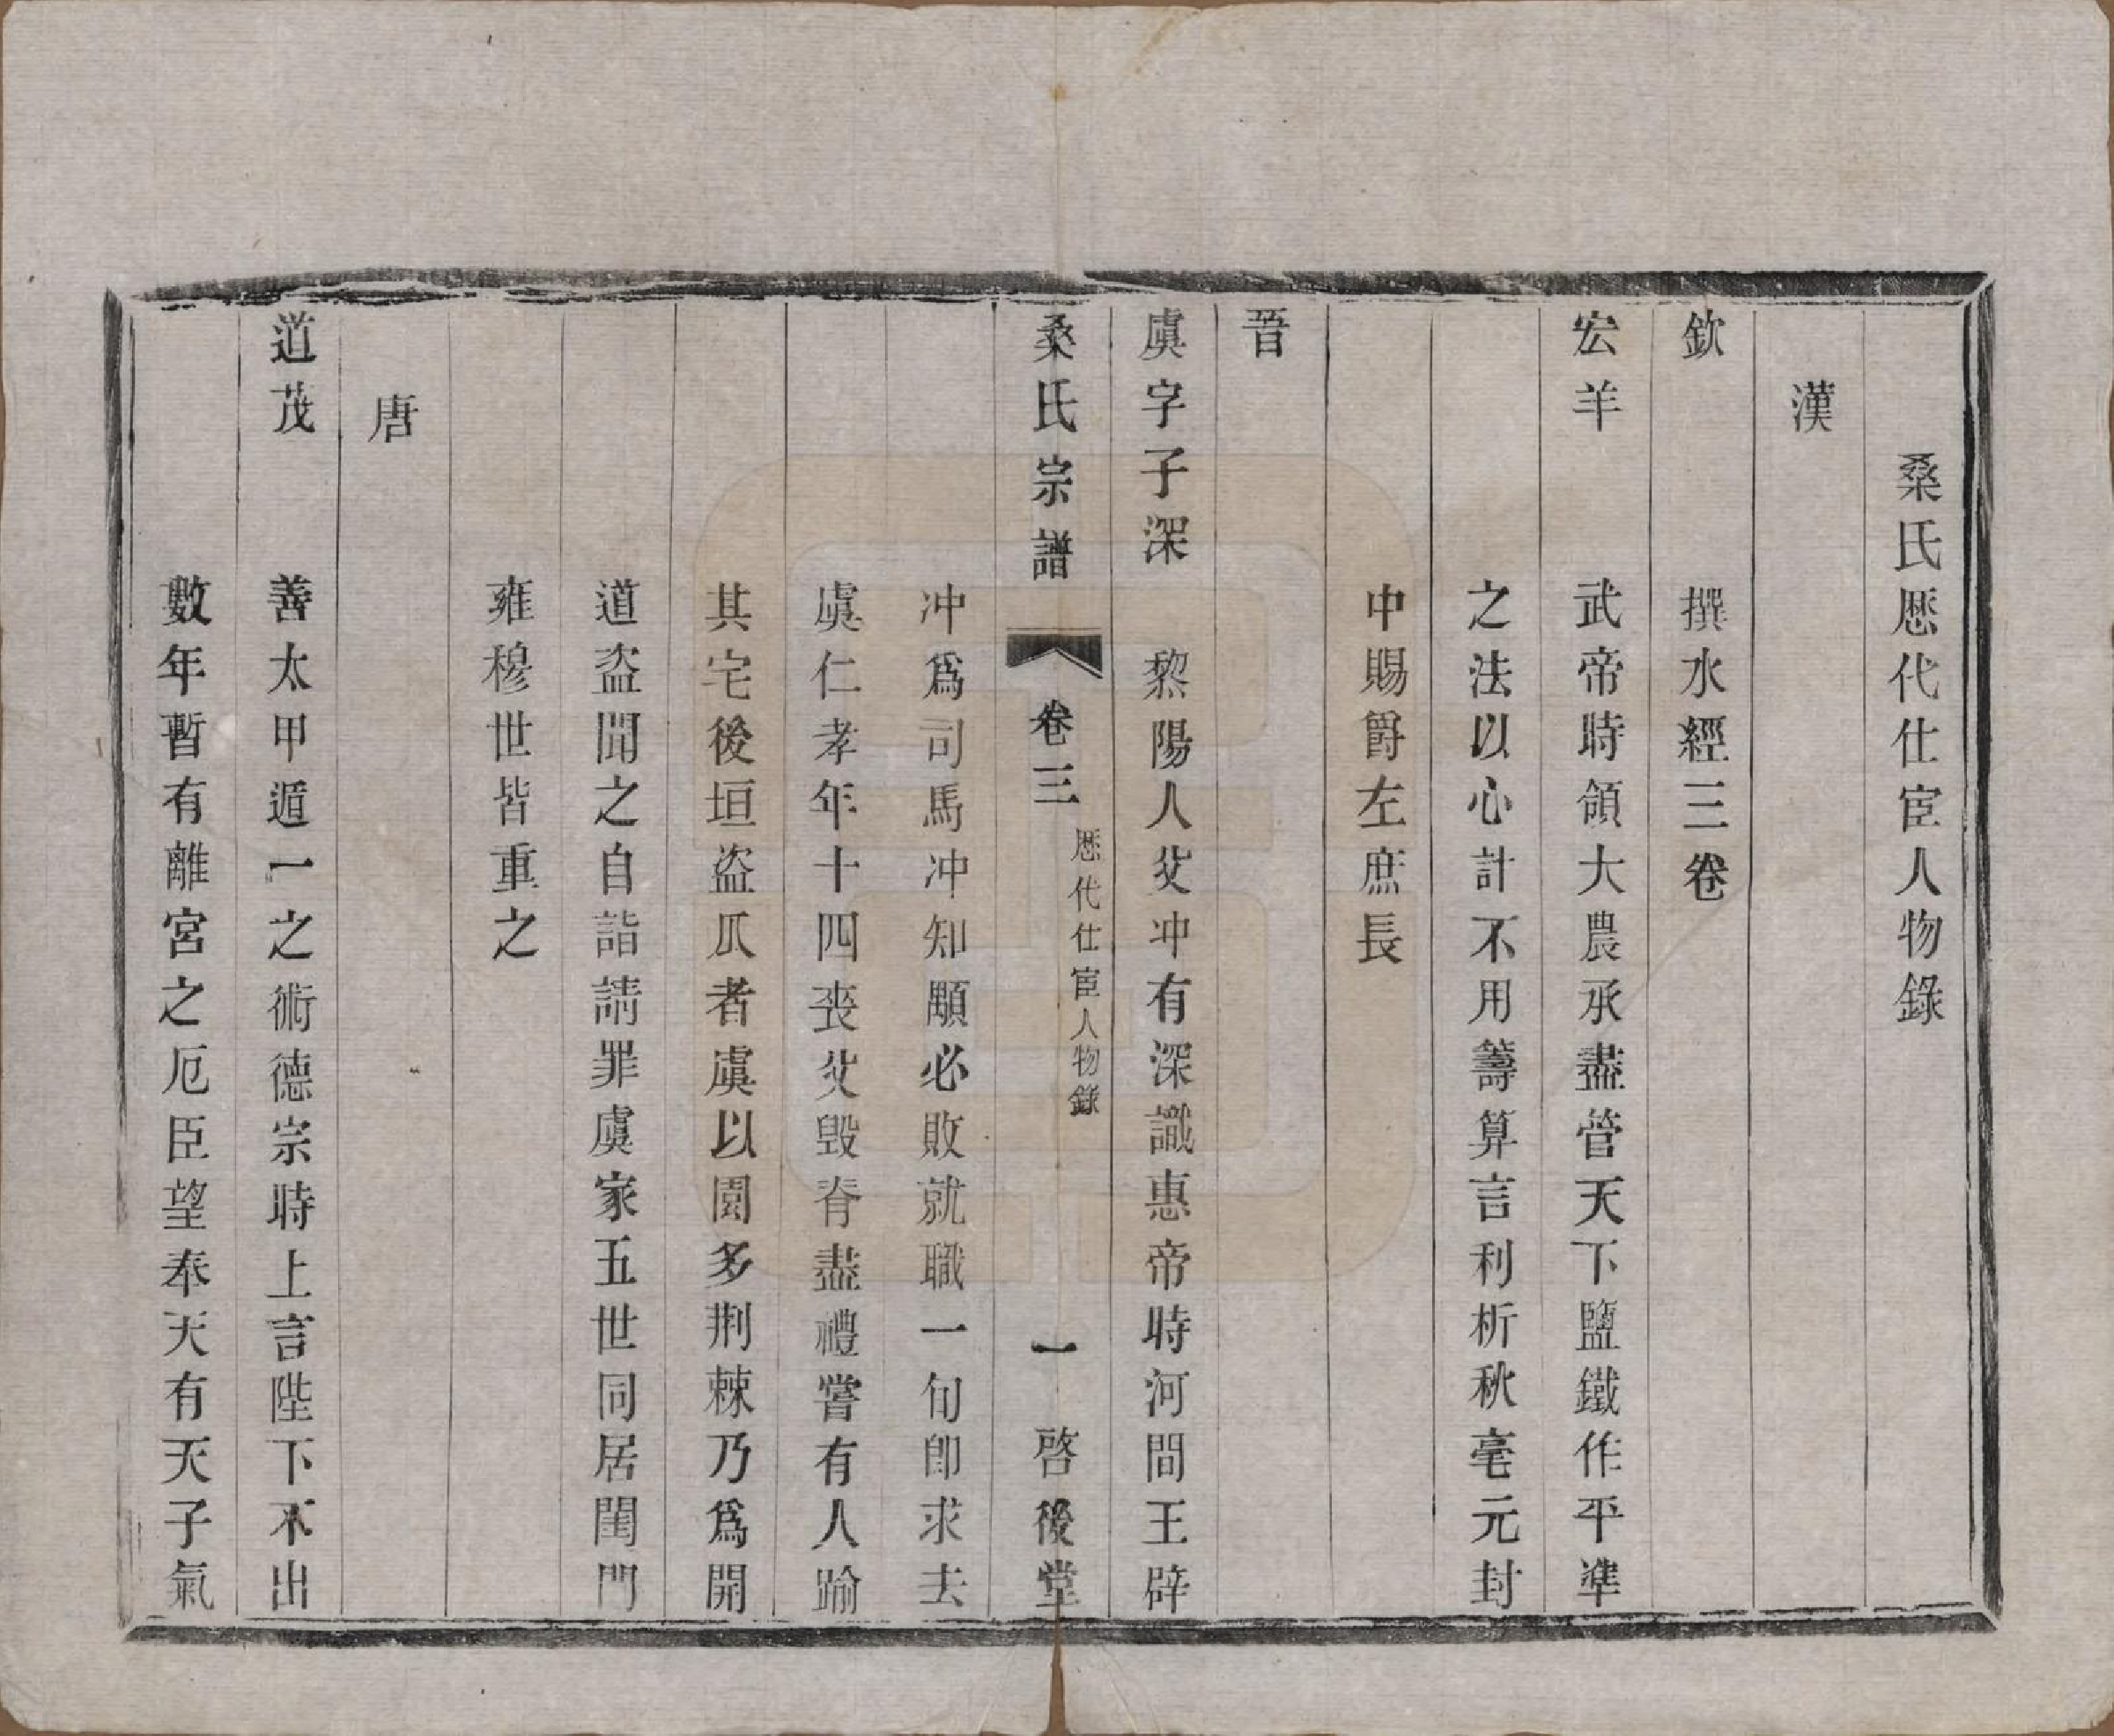 桑氏歷代仕宦人物錄
漢
欽 撰水經三卷
宏羊 武帝時領大農承盡管天下鹽鐵作平準
之法以心計不用籌算言利析秋毫元封
中賜爵左庶長
晉
虞字子深 黎陽人父冲有深識惠帝時河間王辟
桑氏宗譜 卷三 歷代仕宦人物錄 一 啓後堂
冲爲司馬冲知顒必敗就職一旬卽求去
虞仁孝年十四喪父毀脊盡禮嘗有人踰
其宅後垣盜瓜者虞以園多荆棘乃爲開
道盜聞之自詣請罪虞家五世同居閨門
雍穆世皆重之
唐
道茂 善太甲遁一之術德宗時上言陛下不出
數年暫有離宮之厄臣望奉天有天子氣